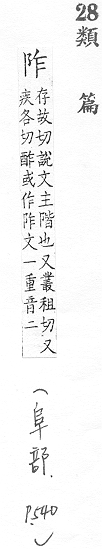 28 類篇
阼
存故切說文主階也又叢祖切又
疾各切酢或作阼文一重音二
(阜部.
P.540)